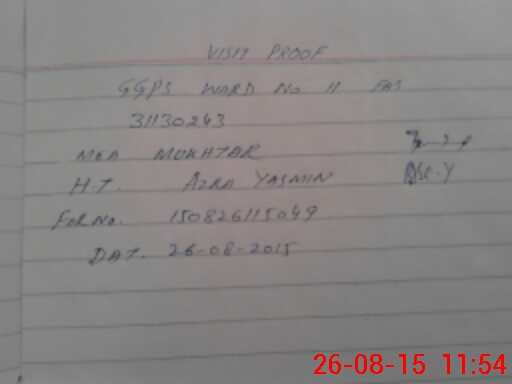 VISIT PROOF
GGPS WARD No. 11 FAS
31130243
MEA MUKHTAR
H.T. AZRA YASMIN
FOR No. 150826115049
DAT. 26-08-2015
26-08-15 11:54